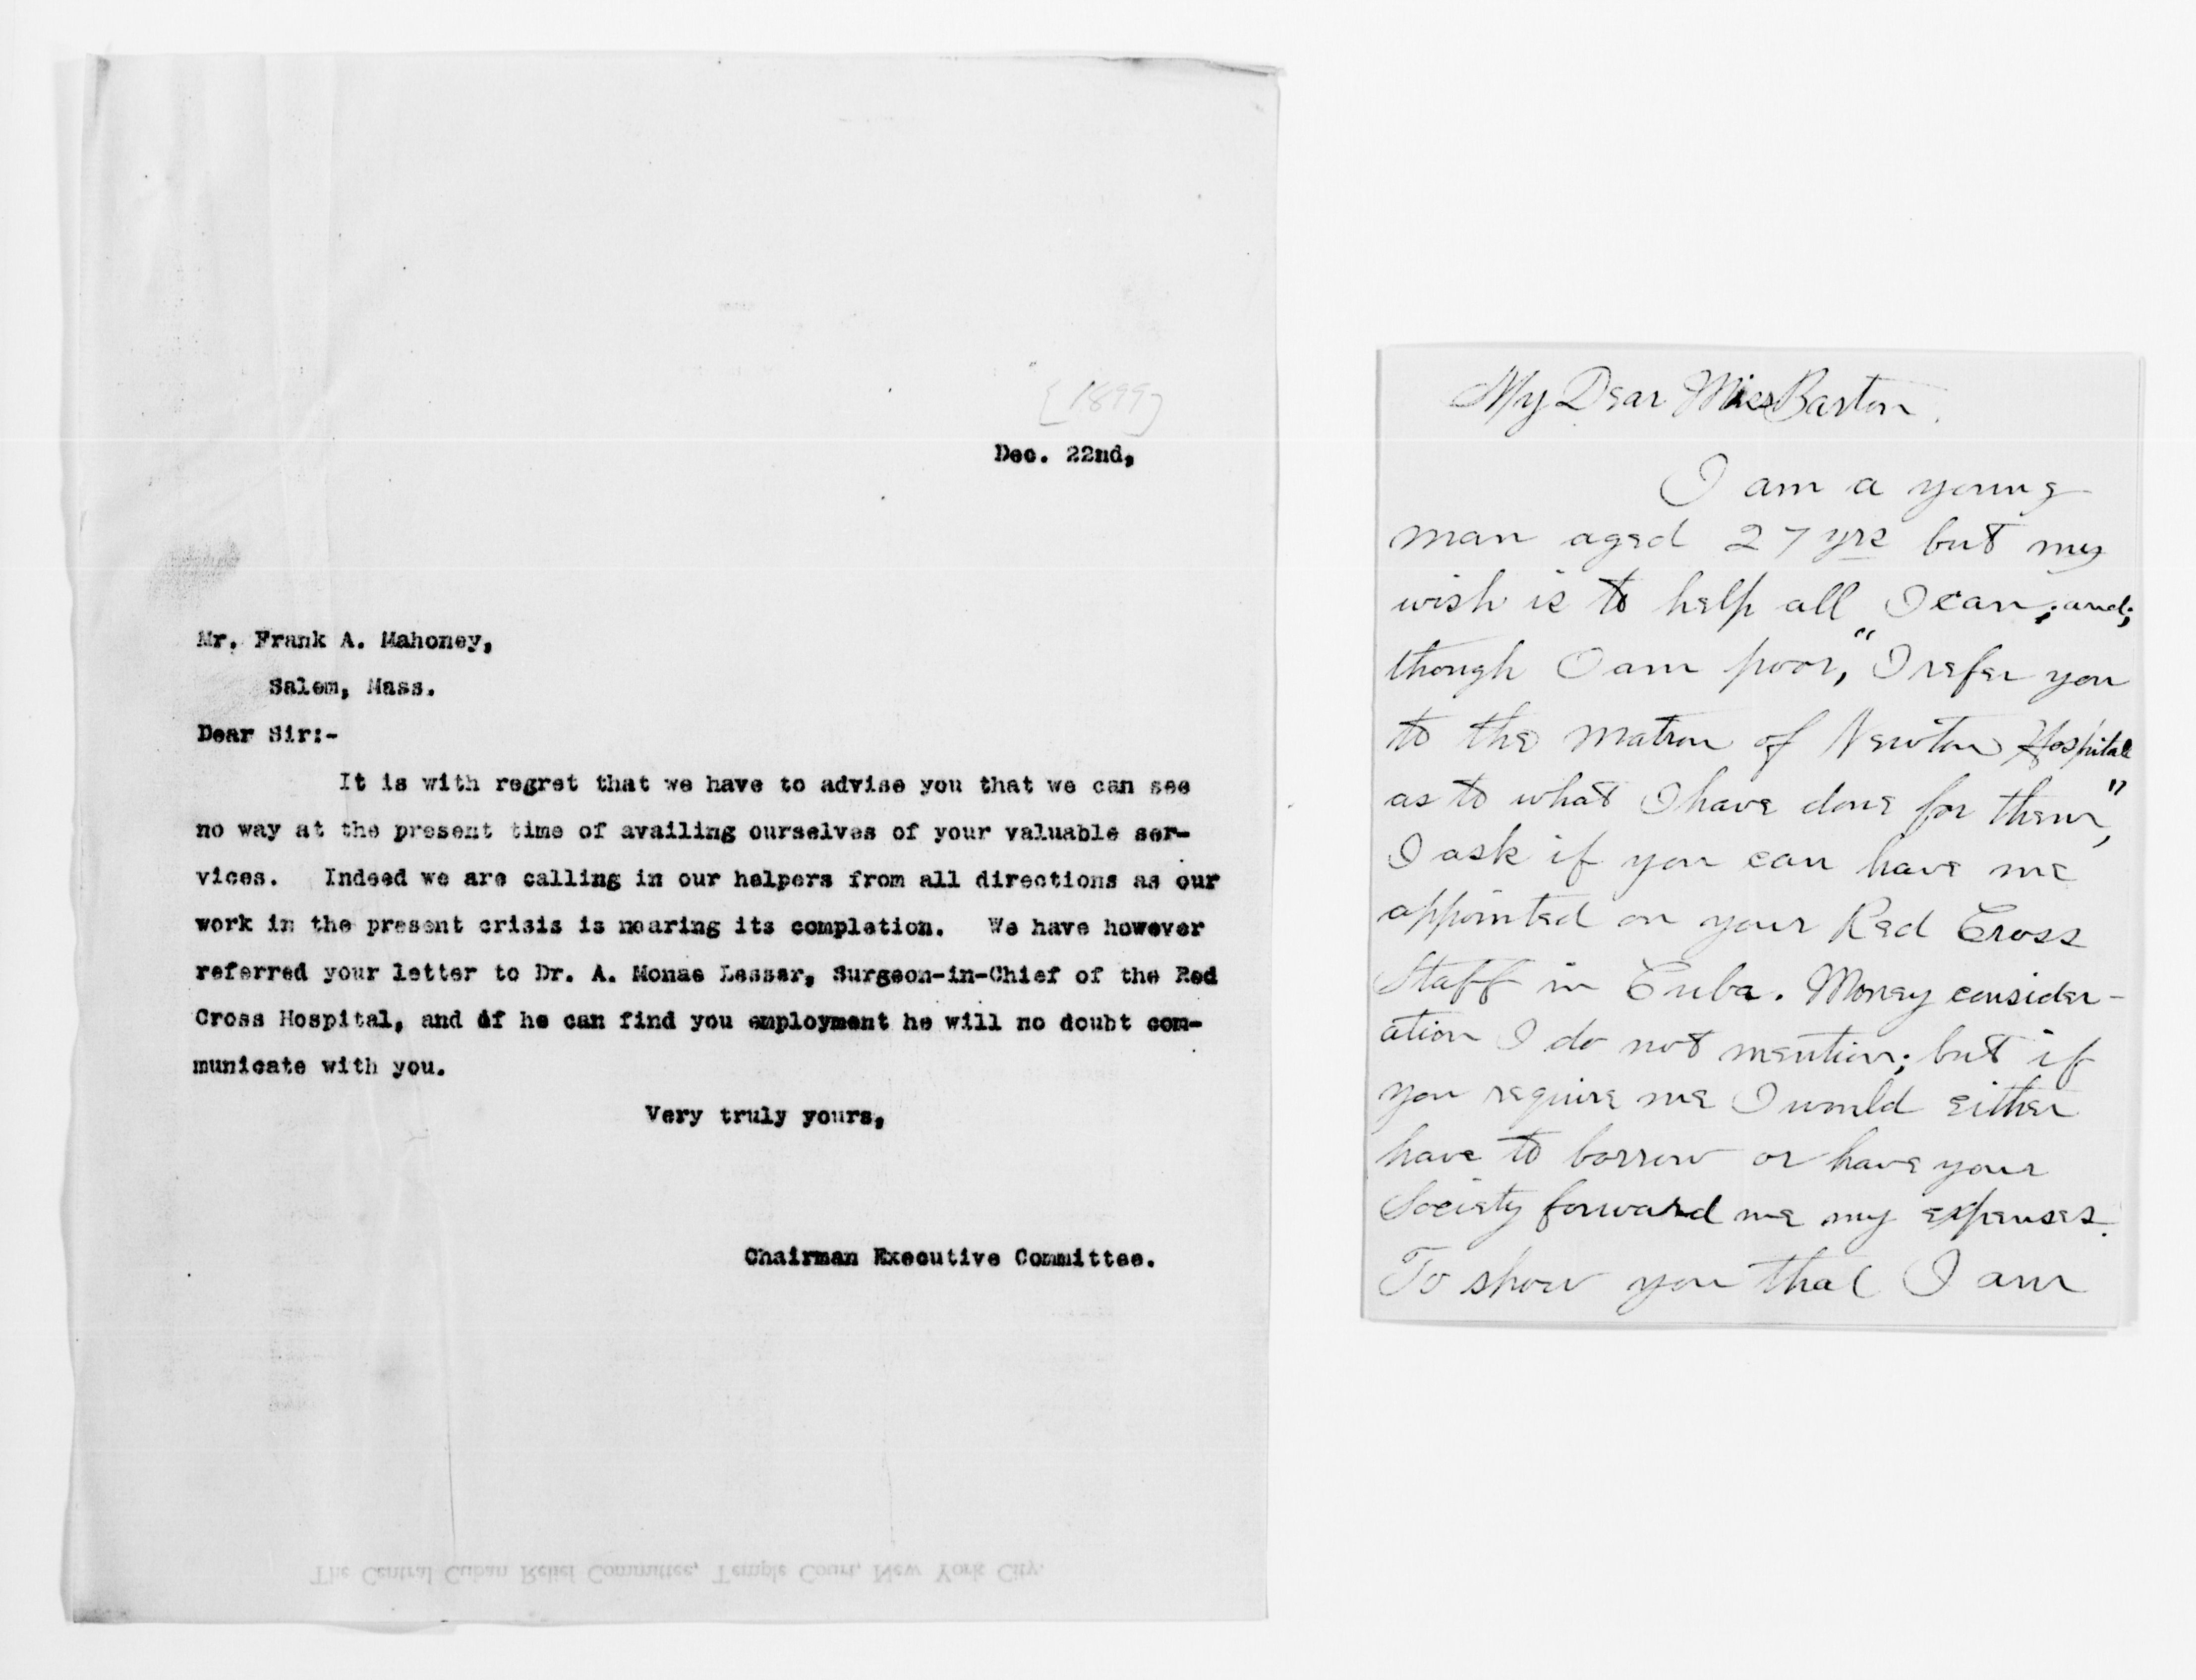 [1899]
Dec. 22nd,
Mr. Frank A. Mahoney,
Salem, Mass.
Dear Sir:-
It is with regret that we have to advise you that we can see
no way at the present time of availing ourselves of your valuable ser-
vices. Indeed we are calling in our helpers from all directions as our
work in the present crisis is nearing its completion. We have however
referred your letter to Dr. A. Monae Lesser, Surgeon-in-Chief of the Red
Cross Hospital, and if he can find you employment he will no doubt com-
municate with you.
Very truly yours,
Chairman Executive Committee.
The Central Cuban Relief Committee, Temple Court, New York City.
My Dear Miss Barton.
I am a young
man aged 27 yrs but my
wish is to help all I can; and;
though I am poor, "I refer you
to the matron of Newton Hospital
as to what I have done for them,"
I ask if you can have me
appointed on your Red Cross
Staff in Cuba. Money consider-
ation I do not mention; but if
you require me I would either
have to borrow or have your
Society forward me my expenses.
To show you that I am